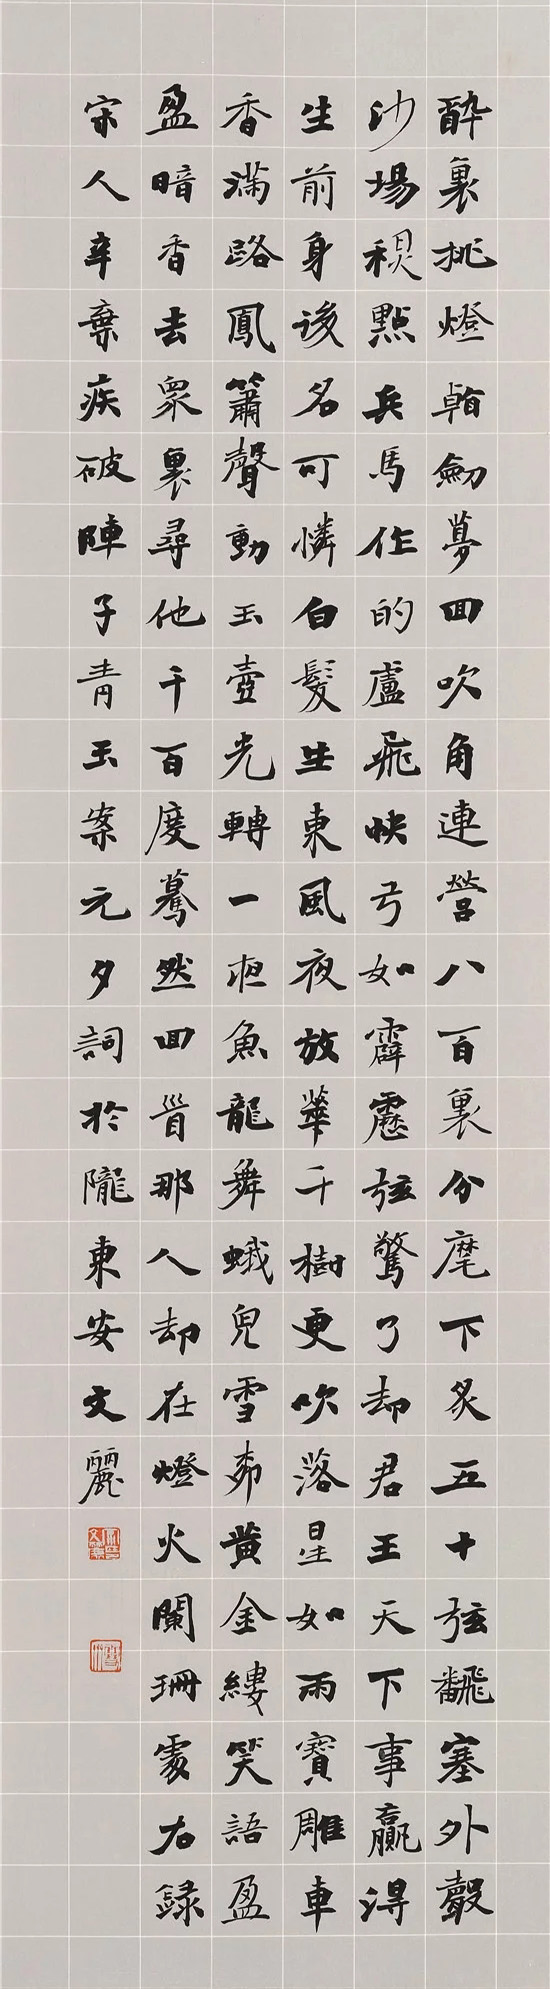 醉裏挑燈看劍夢回吹角連營八百裏分麾下炙五十弦飜塞外聲
沙場秋點兵馬作的盧飛快弓如霹靂弦驚了却君王天下事贏得
生前身後名可憐白髮生東風夜放華千樹更吹落星如雨寶雕車
香滿路鳳簫聲動玉壺光轉一夜魚龍舞蛾兒雪柳黃金縷笑語盈
盈暗香去衆裏尋他千百度驀然回首那人却在燈火闌珊處右録
宋人辛棄疾破陣子青玉案元夕詞於隴東安文麗